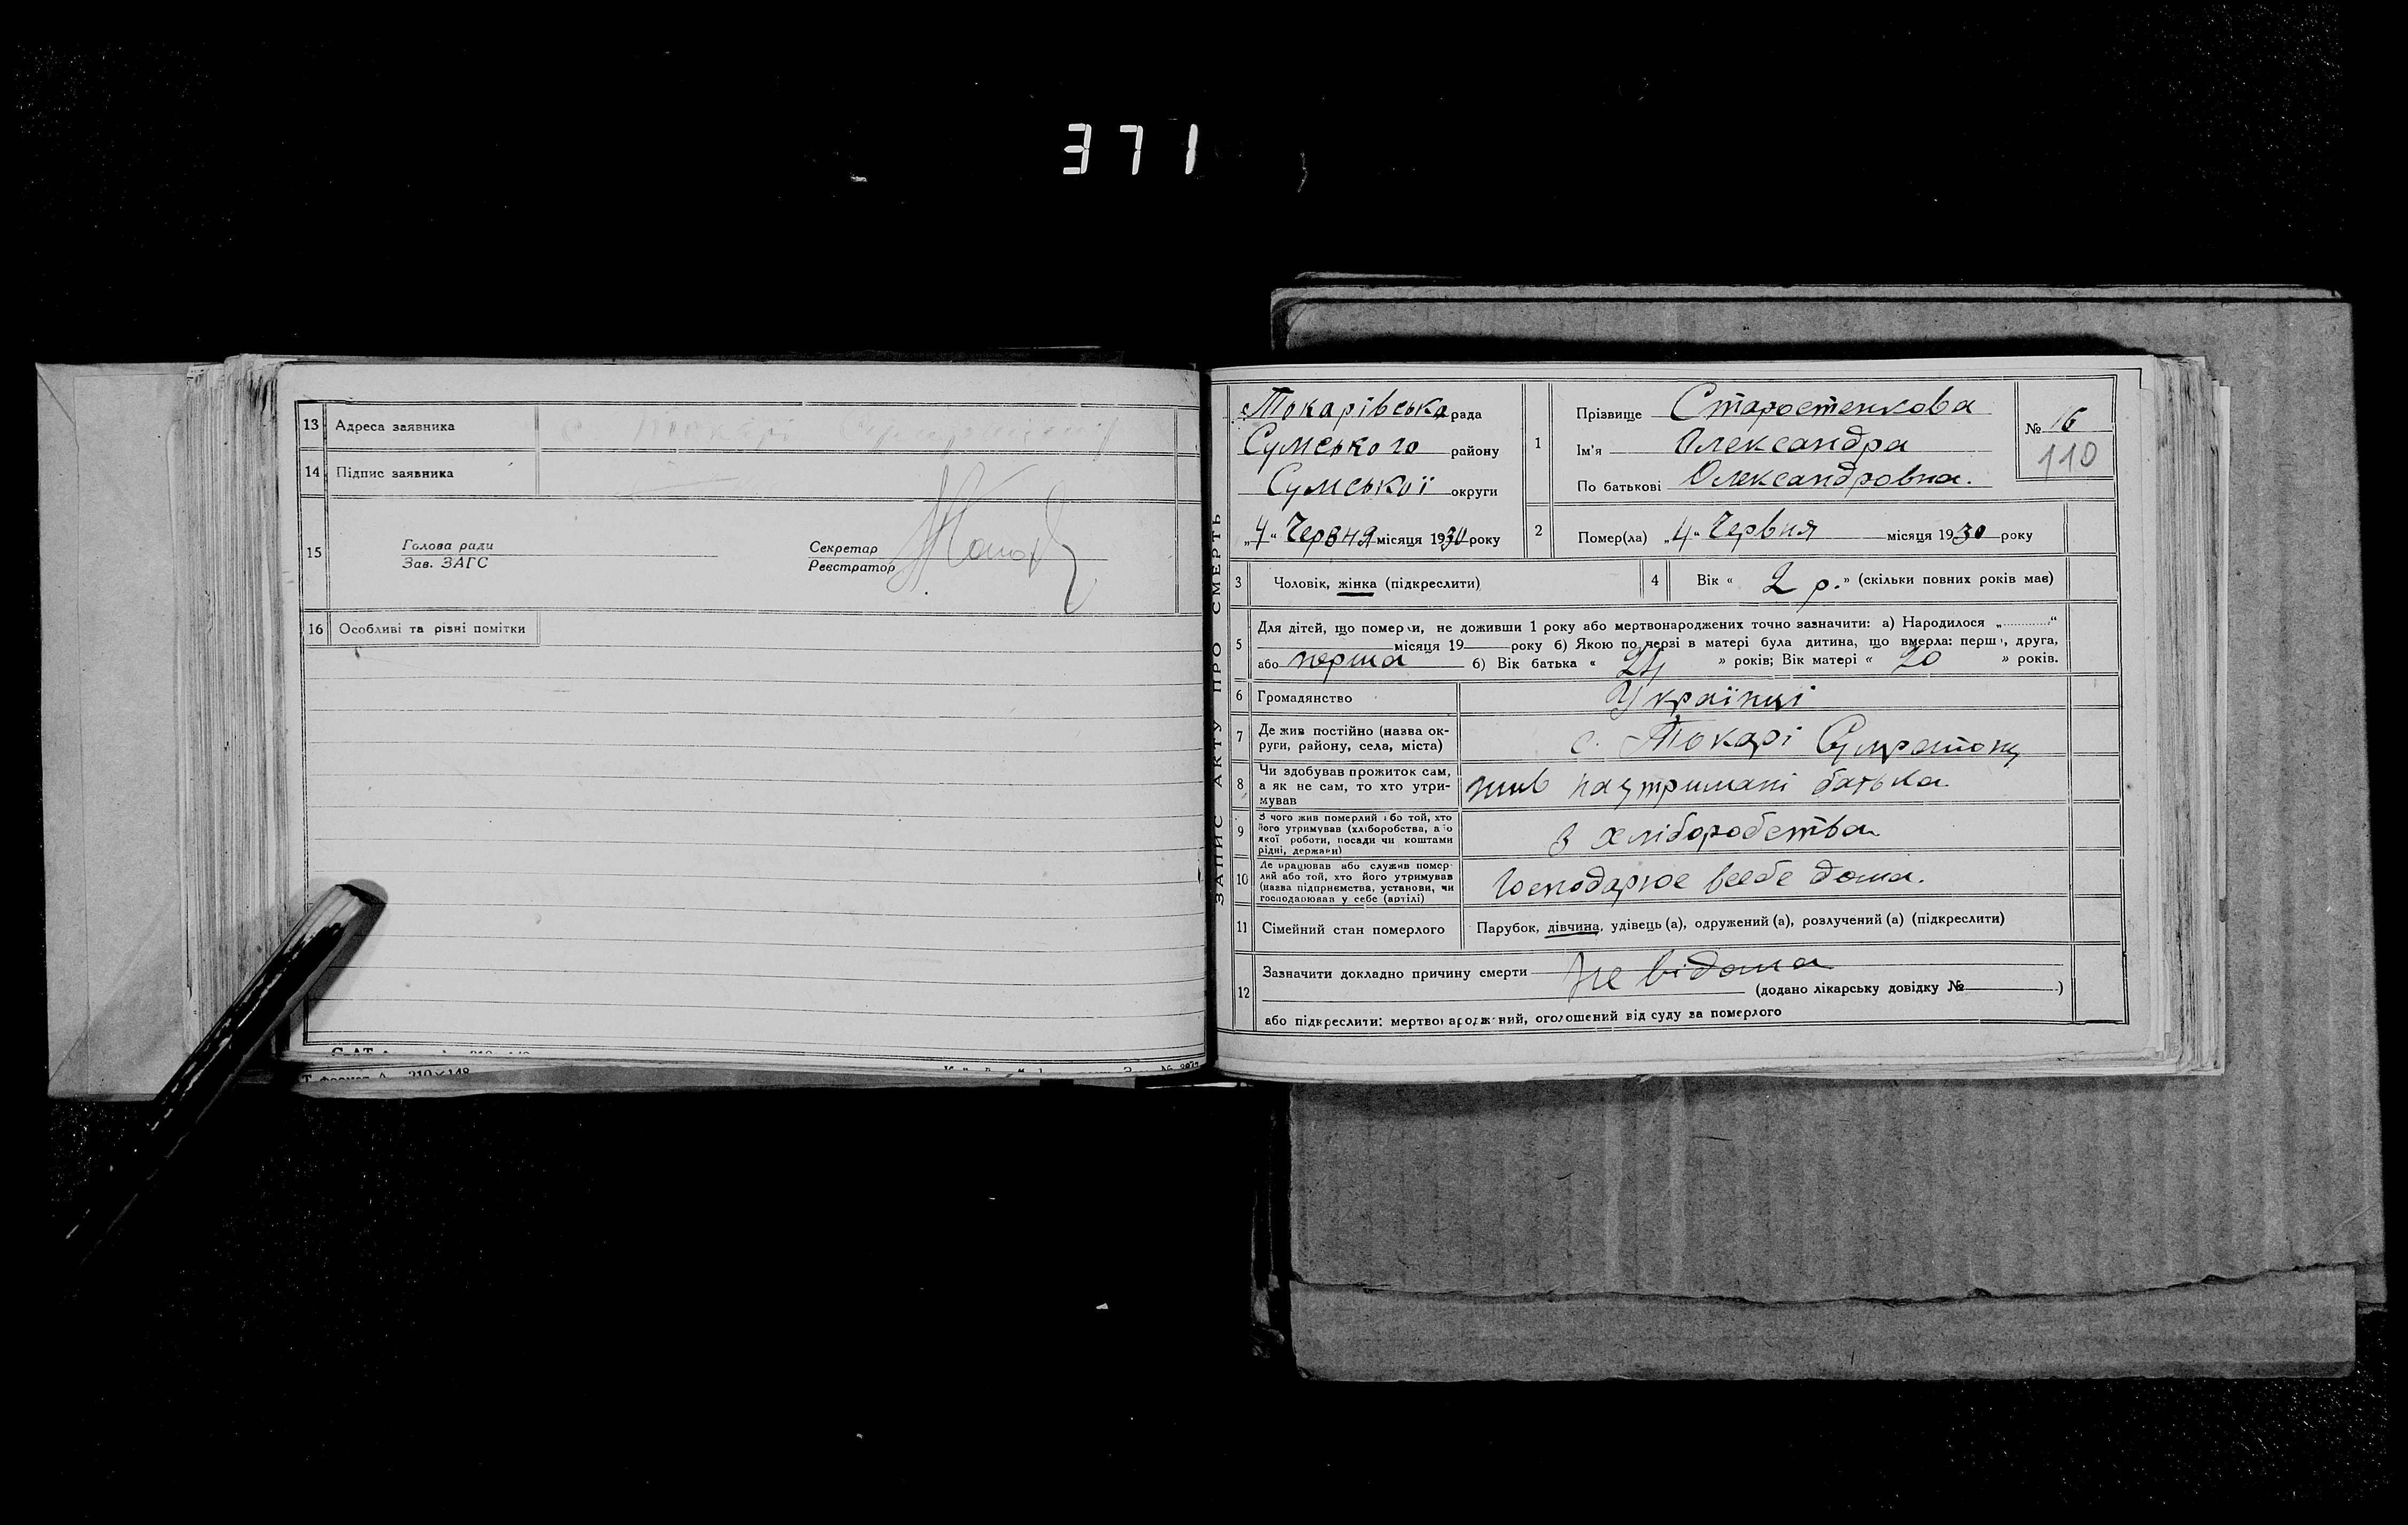 371
13 Адреса заявника с. Токарі
14 Підпис заявника
15 Голова ради
Зав. ЗАГС
Секретар
Реєстратор
16 Особливі та різні помітки
Формат А 210×148
ЗАПИС АКТУ ПРО СМЕРТЬ
с. Токарівська рада
Сумського району
Сумської округи
„4“ Червня місяця 1930 року
1 Прізвище Старостенкова
Ім'я Олександра
По батькові Олександровна.
№ 16
110
2 Помер(ла) „4“ Червня місяця 1930 року
3 Чоловік, жінка (підкреслити)
4 Вік « 2 р. » (скільки повних років має)
5 Для дітей, що померли, не доживши 1 року або мертвонароджених точно зазначити: а) Народилося „............“
місяця 19 року б) Якою по черзі в матері була дитина, що вмерла: перша, друга,
або перша б) Вік батька « 24 » років; Вік матері « 20 » років.
6 Громадянство Українці
7 Де жив постійно (назва ок-
руги, району, села, міста) с. Токарі Сумрайону
8 Чи здобував прожиток сам,
а як не сам, то хто утри-
мував жив наутримані батька
9 З чого жив померлий або той, хто
його утримував (хліборобства, або
якої роботи, посади чи коштами
рідні, держави) з хліборобства
10 Де працював або служив помер-
лий або той, хто його утримував
(назва підприємства, установи, чи
господарював у себе (артілі) Господарює всебе дома.
11 Сімейний стан померлого Парубок, дівчина, удівець (а), одружений (а), розлучений (а) (підкреслити)
12 Зазначити докладно причину смерти Не відома
(додано лікарську довідку № )
або підкреслити: мертвонароджений, оголошений від суду за померлого